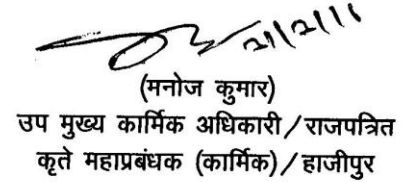 21/2/11
(मनोज कुमार)
उप मुख्य कार्मिक अधिकारी/राजपत्रित
कृते महाप्रबंधक (कार्मिक)/हाजीपुर